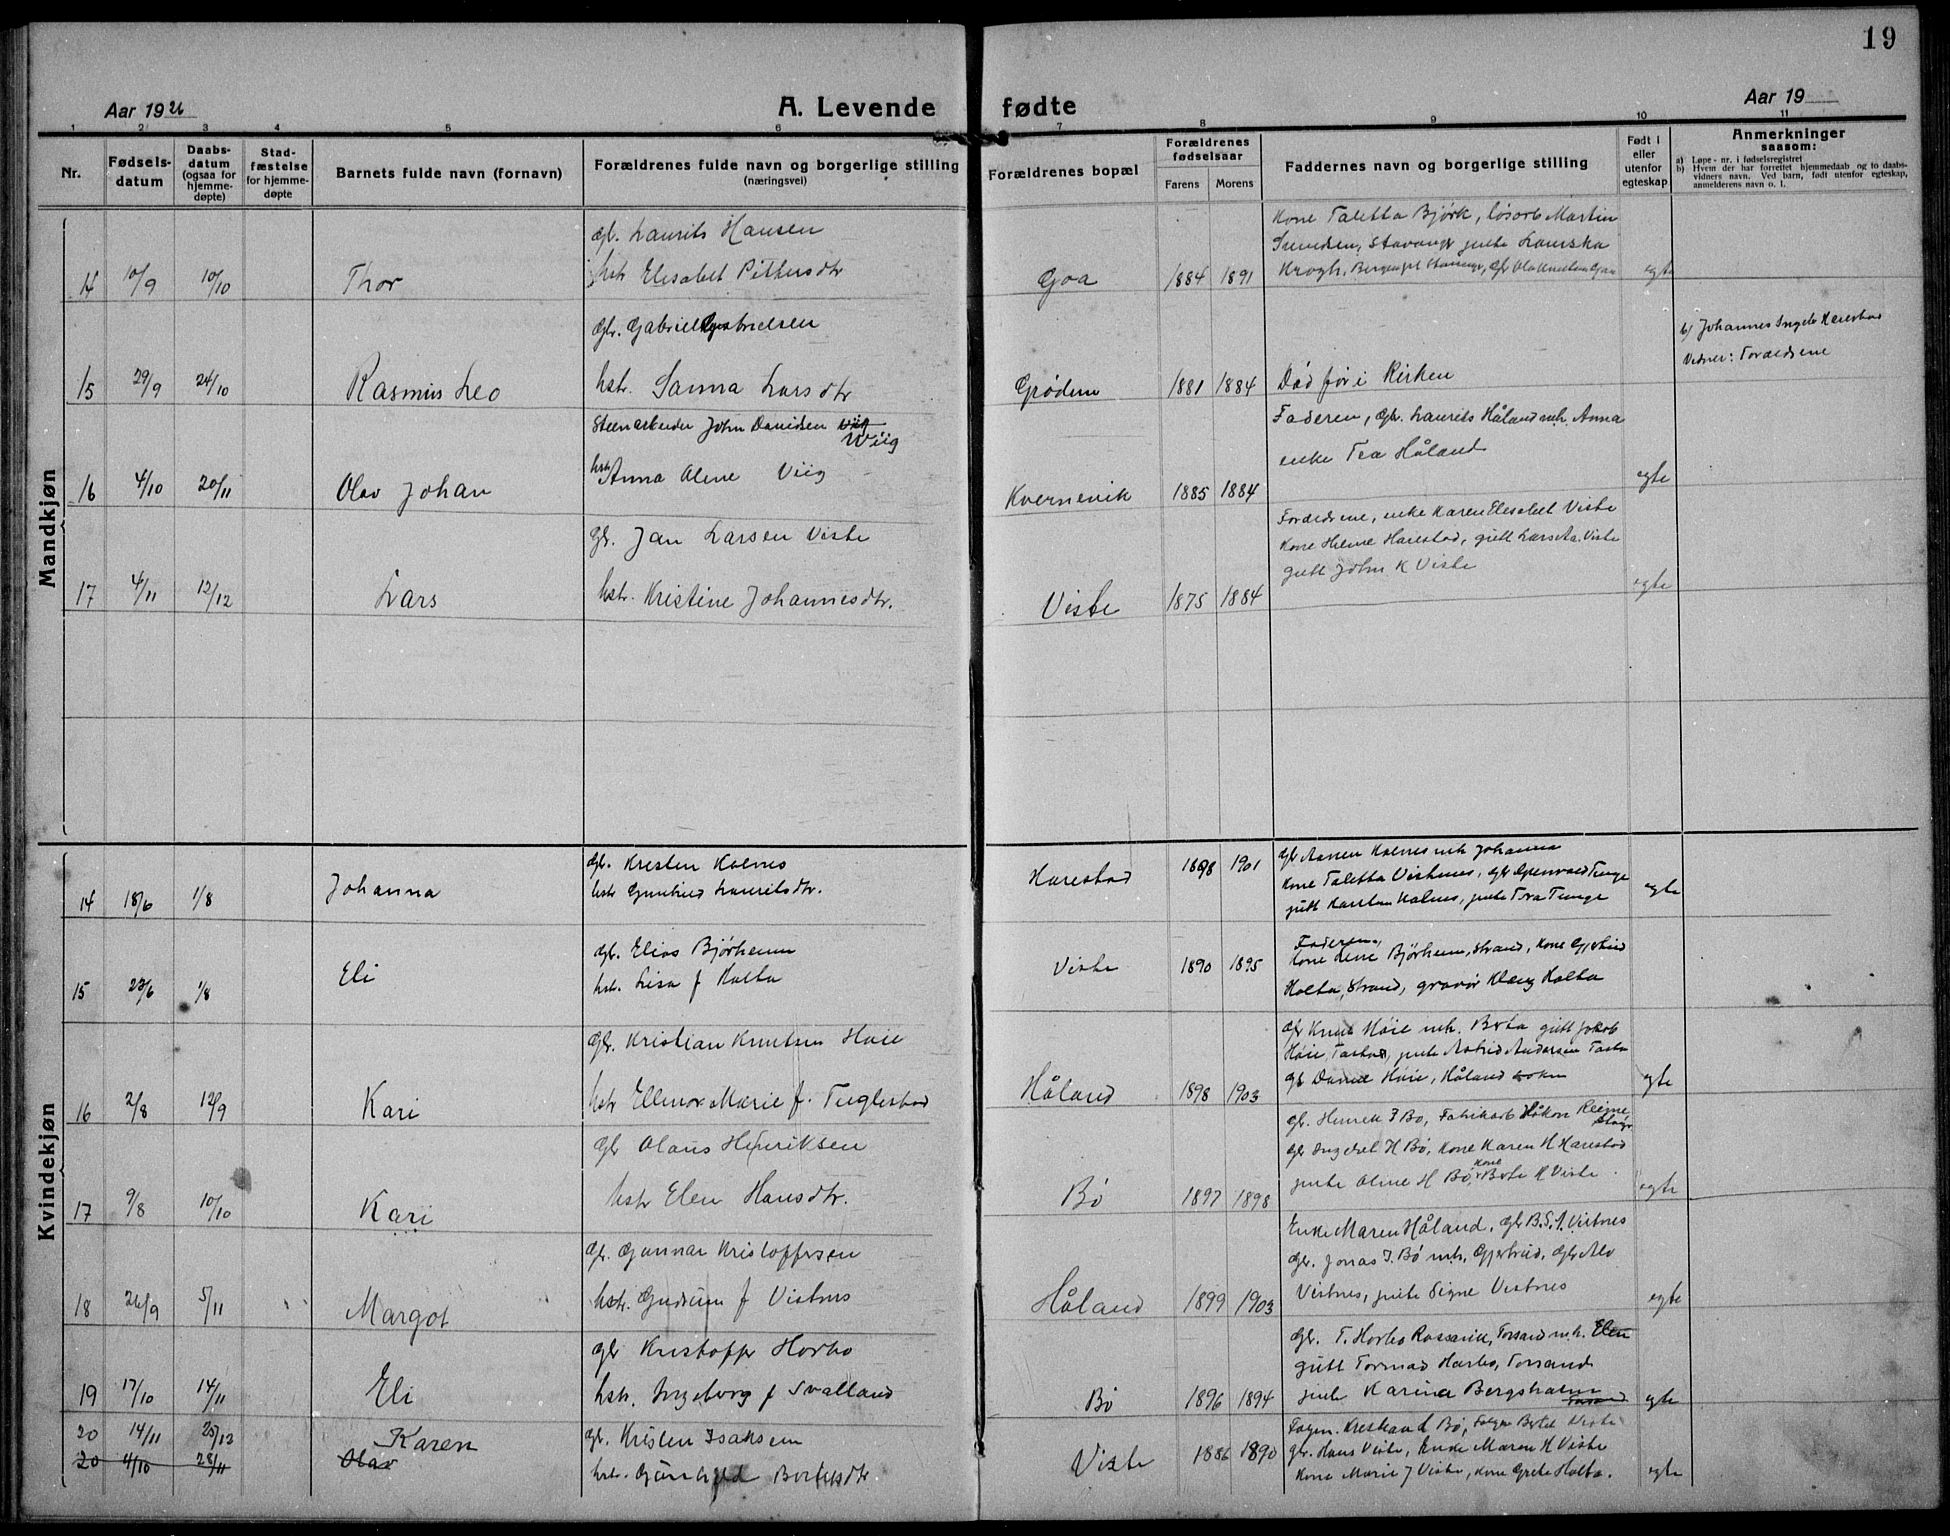 19
Aar 1926
A. Levende fødte
Aar 19
1 2 3 4 5 6 7 8 9 10 11
Nr.
Fødselsdatum
Daabsdatum (ogsaa for hjemmedøpte)
Stadfæstelse for hjemmedøpte
Barnets fulde navn (fornavn)
Forældrenes fulde navn og borgerlige stilling (næringsvei)
Forældrenes bopæl
Forældrenes fødselsaar
Farens Morens
Faddernes navn og borgerlige stilling
Født i eller utenfor egteskap
Anmerkninger saasom:
a) Løpe-nr. i fødselsregistret
b) Hvem der har forrettet hjemmedaab og to daabsvidners navn. Ved barn, født utenfor egteskap, anmelderens navn o. l.
Mandkjøn
gbr. Laurits Hansen
14 10/9 10/10 Thor
hstr Elisabet Pettersdtr
Goa 1884 1891
Kone Taletta Bjørk, løsarb Martin
Svendsen, Stavanger, pike
Krogh,
egte
Gbr. Gabriel Gabrielsen
15 29/9 24/10 Rasmus Leo
hstr. Sanna Larsdtr
Grødem 1881 1884
Død før i Kirken
b) Johannes Harestad
Vidner: Forældrene
Steenarbeider John Danielsen Wiig
16 4/10 20/11 Olav Johan
hstr Anna Oline Viig
Kvernevik 1885 1884
Faderen, Gbr. Laurits Håland mh. Anna
enke Tea Håland
egte
Gbr. Jan Larsen Viste
17 4/11 12/12 Lars
hstr. Kristine Johannesdtr.
Viste 1875 1884
Forældrene, enke Karen Elisabet Viste
Kone Helene Harestad, gutt Lars Aa. Viste
gutt John K Viste
egte
Kvindekjøn
gbr. Kristen Kalnes
14 18/6 1/8 Johanna
hstr Gunhild Lauritsdtr.
Harestad 1898 1901
gbr Kalnes mh Johanna
Kone Taletta Vistnes, gbr Tunge
gutt Karsten Kalnes, pike Tora Tunge
egte
gbr. Elias Bjørheim
15 23/6 1/8 Eli
hstr. Lisa f Holta
Viste 1890 1895
Faderen,
Kone Lene Bjørheim, Strand, Kone Gjertrud
Holta, Strand, gravør Holta
Gbr. Kristian Knutsen Høie
16 2/8 12/9 Kari
hstr Ellinor Marie f. Tuglestad
Håland 1898 1903
gbr Knut Høie mh. Berta gutt Jakob
Høie, Tasta, pike Astrid Andersen Tasta
gbr Daniel Høie, Håland sokn
egte
Gbr Olaus Henriksen
17 9/8 10/10 Kari
hstr Elen Hansdtr.
Bø 1897 1898
gbr. Henrik J Bø, Fabrikarb Håkon
gbr H Bø, Kone Karen H Harestad
pike Oline H Bø, Kone Berte K Viste.
egte
Gbr. Gunnar Kristoffersen
18 26/9 5/11 Margot
hstr. Gudrun f Vistnes
Håland 1899 1903
Enke Maren Håland, gbr B.S.A. Vistnes
Gbr. Jonas J. Bø mh. Gjertrud, gbr
Vistnes, pike Signe Vistnes
egte
gbr Kristoffer Horbo
19 17/10 14/11 Eli
hstr. Ingeborg f Svalland
Bø 1896 1894
Gbr. T. Horbo Rossavik, Forsand mh. Elen
gutt Tormod Horbo, Forsand
pike Karina Bergsholm
egte
20 14/11 25/12 Karen
gbr. Kristen Isaksen
20 4/10 28/11 Olav
Viste 1886 1890
Bø,
gbr. Hans Viste, Enke Maren K Viste
Kone Marie J Viste, Kone Grete Holta.
egte